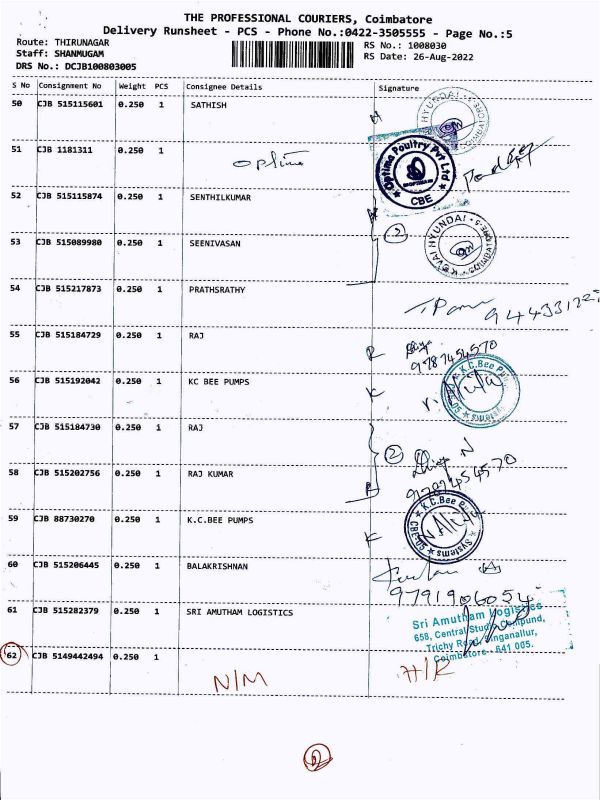 THE PROFESSIONAL COURIERS, Coimbatore
Delivery Runsheet - PCS - Phone No.:0422-3505555 - Page No.:5
Route: THIRUNAGAR
Staff: SHANMUGAM
DRS No.: DCJB100803005
RS No.: 1008030
RS Date: 26-Aug-2022
S No Consignment No Weight PCS Consignee Details Signature
50 CJB 515115601 0.250 1 SATHISH
HYUNDAI
51 CJB 1181311 0.250 1
Optima
Optima Poultry Pvt Ltd
CBE
52 CJB 515115874 0.250 1 SENTHILKUMAR
2
53 CJB 515089980 0.250 1 SEENIVASAN
KOVAI HYUNDAI COIMBATORE-5
54 CJB 515217873 0.250 1 PRATHSRATHY
55 CJB 515184729 0.250 1 RAJ
R
9787454570
56 CJB 515192042 0.250 1 KC BEE PUMPS
K
K.C.Bee Pumps Systems CBE-05
57 CJB 515184730 0.250 1 RAJ
2
9787454570
58 CJB 515202756 0.250 1 RAJ KUMAR
R
59 CJB 88730270 0.250 1 K.C.BEE PUMPS
K
K.C.Bee Pumps Systems CBE-05
60 CJB 515206445 0.250 1 BALAKRISHNAN
9791906054
61 CJB 515282379 0.250 1 SRI AMUTHAM LOGISTICS
Sri Amutham Logistics
658, Central Studio Compund,
Trichy Road, Singanallur,
Coimbatore - 641 005.
62 CJB 5149442494 0.250 1
N/M
H/K
2